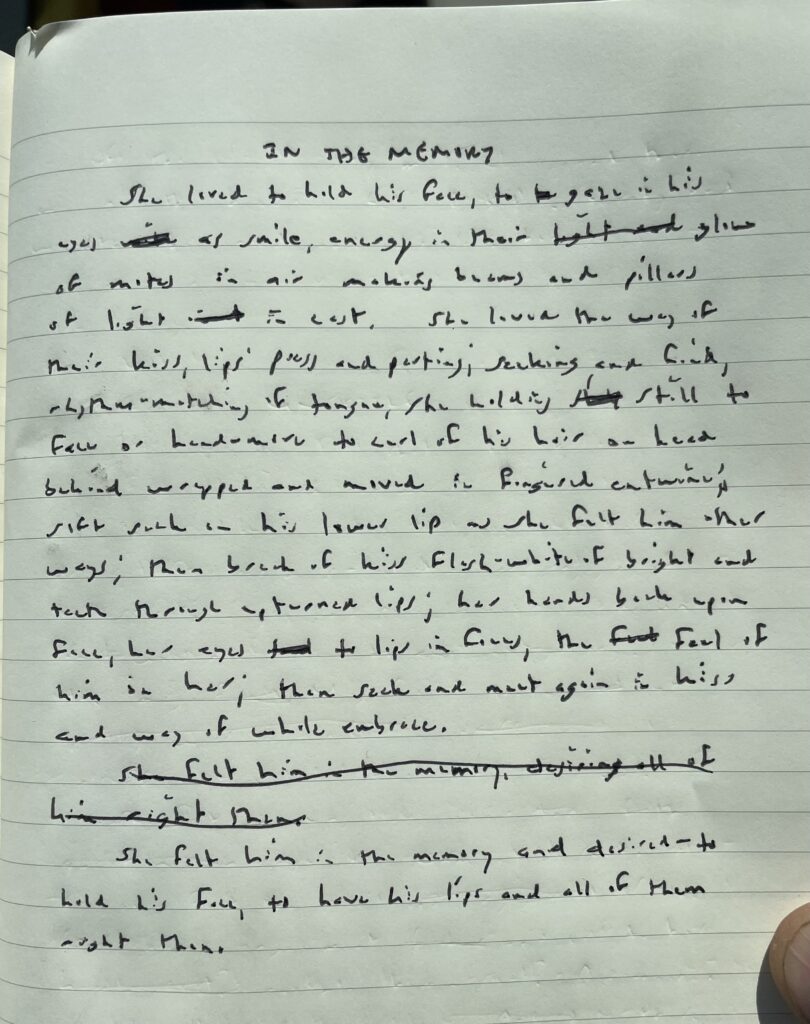 IN THE MEMORY
She loved to hold his face, to gaze in his
eyes as smile, energy in their light and glow
of motes in air making beams and pillars
of light in cast. She loved the way of
their kiss, lips' press and parting; seeking and find,
rhythm-matching of tongue, she holding still to
face or hands-more to curl of his hair on head
behind wrapped and moved in fingered entwining;
soft suck on his lower lip as she felt him other
ways; then break of kiss flash-white of bright and
teeth through upturned lips; her hands back upon
face, her eyes to lips in focus, the feel of
him in her; then seek and meet again in kiss
and way of whole embrace.
She felt him in the memory, desiring all of
him right then.
She felt him in the memory and desired-to
hold his face, to have his lips and all of them
right then.